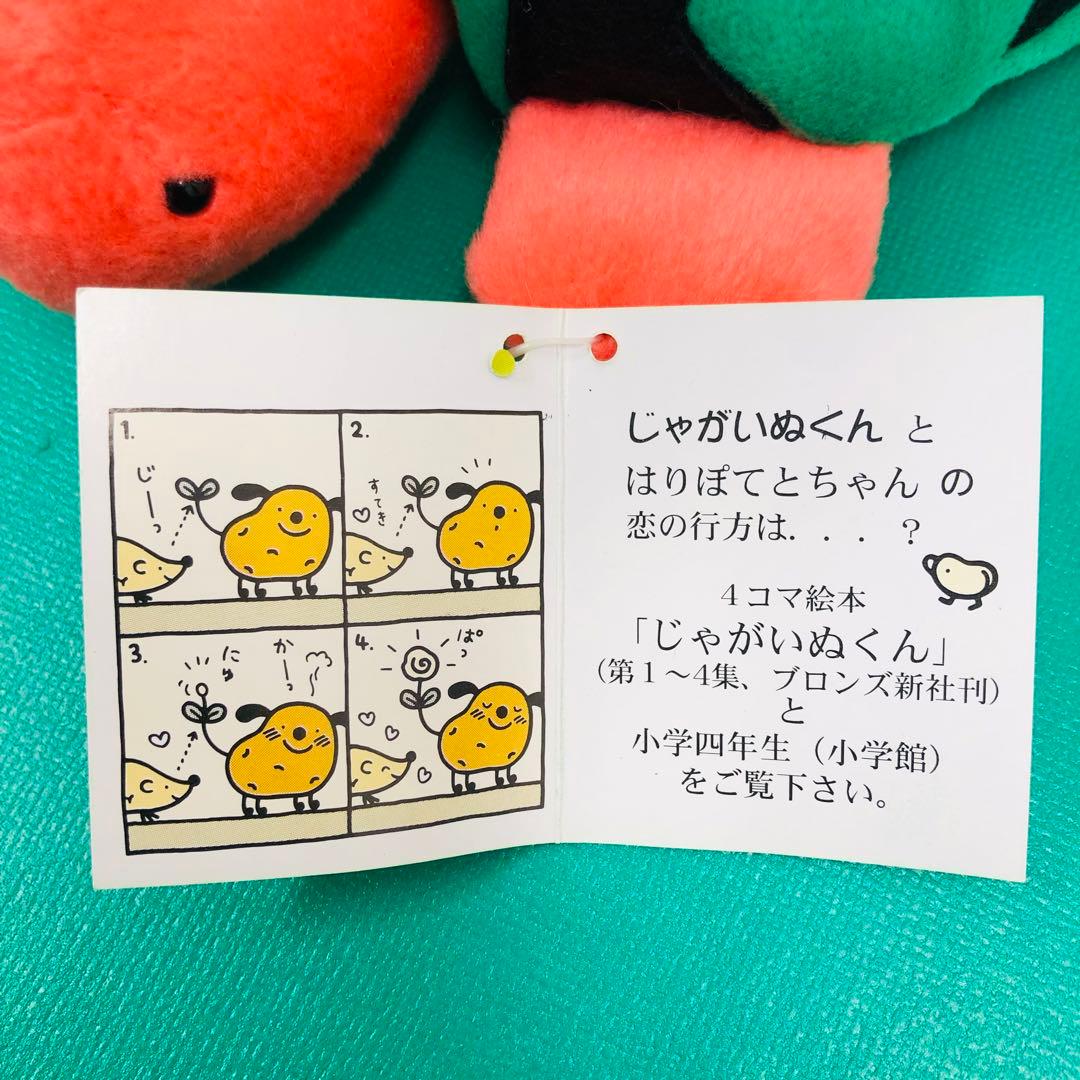 1.
じーっ
2.
すてき
3.
にゅ
かーっ
4.
ぱっ
じゃがいぬくん と
はりぽてとちゃん の
恋の行方は．．．？
４コマ絵本
「じゃがいぬくん」
（第１～4集、ブロンズ新社刊）
と
小学四年生（小学館）
をご覧下さい。